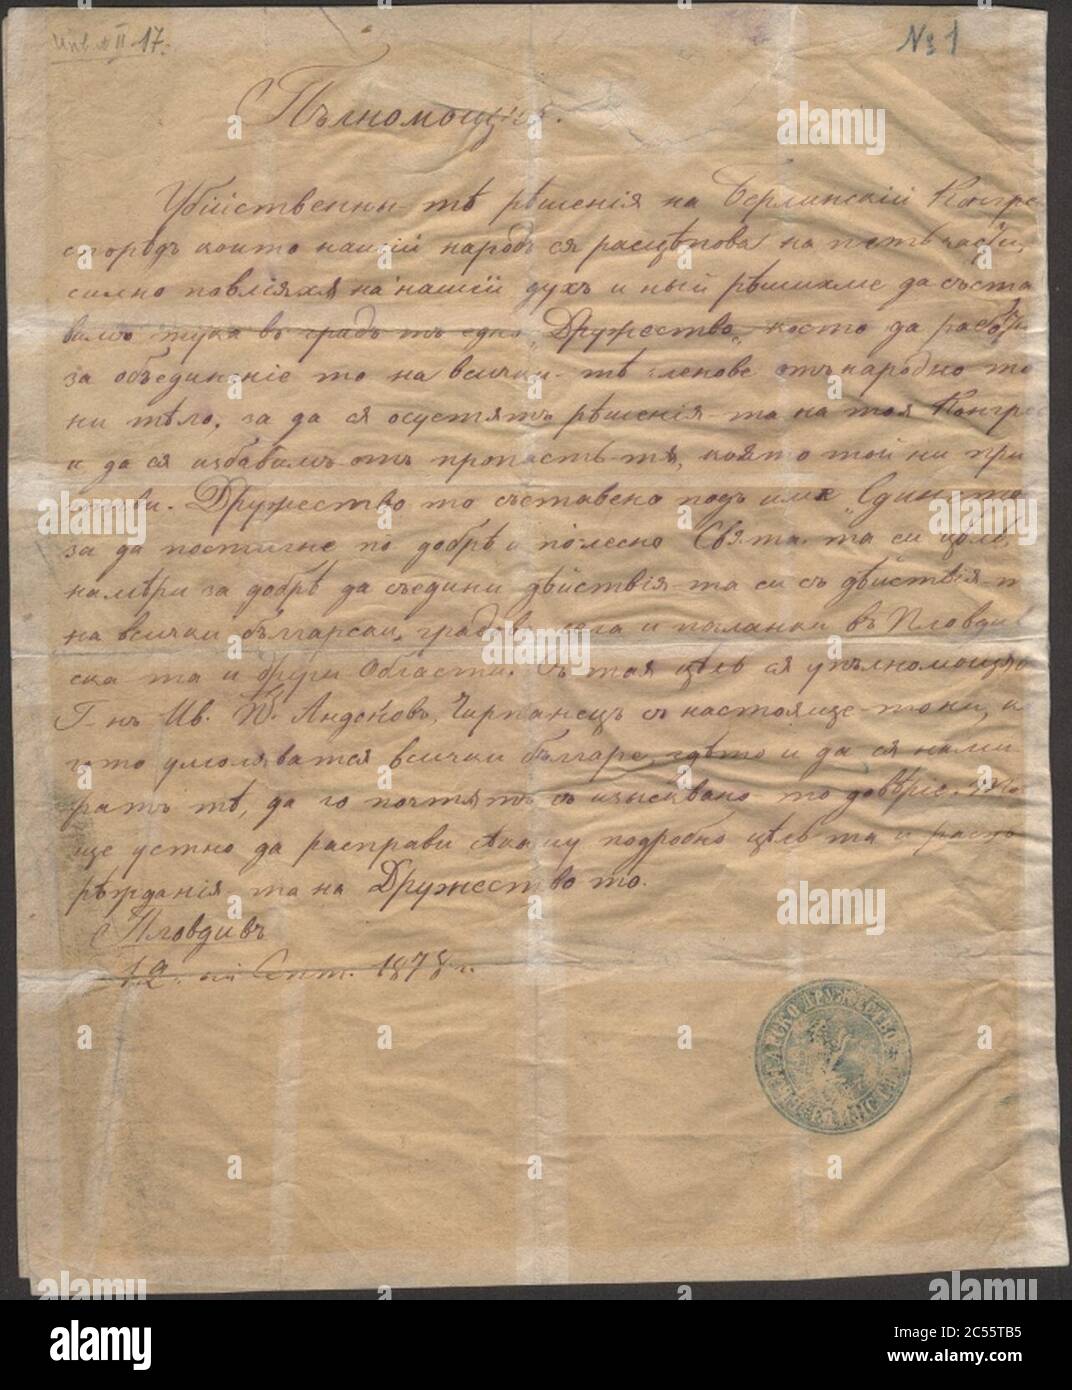 Инв. № II 17.
№ 1
Пълномощие.
Убийственны-тѣ рѣшенія на Берлинскій Конгре
според които нашій народъ ся расцѣпова на петь части,
силно повліяхѫ на нашій духъ и ный рѣшихме да съста
вимъ тука въ градъ-тъ едно „Дружество„ което да работи
за обединеніе-то на всички-тѣ членове отъ народно-то
ни тѣло, за да ся осуетятъ рѣшенія-та на тоя Конгре
и да ся избавимъ отъ пропасть-тѫ, коѭто той ни при
готви. Дружество-то съставено подъ имя „Единство
за да постигне по добрѣ и по лесно Свята-та си цѣль,
намѣри за добрѣ да съедини дѣйствія-та си съ дѣйствія-т
на всички български градов села и паланки въ Пловди
ска-та и други Области. Съ тая цѣль ся упълномощяв
Г-нъ Ив. П. Андоновъ, Чирпанецъ съ настояще-то ни, к
гото умоляватся всички българе, гдѣто и да ся нами
ратъ тѣ, да го почтятъ съ изыскано-то довѣріе. То
ще устно да расправи сѣкиму подробно цѣль-та и распо
рѣжданія-та на Дружество-то.
Пловдивъ
12. ій Септ. 1878 г.
БЪЛГАРСКО ДРУЖЕСТВО
alamy
alamy
Image ID: 2C55TB5
www.alamy.com